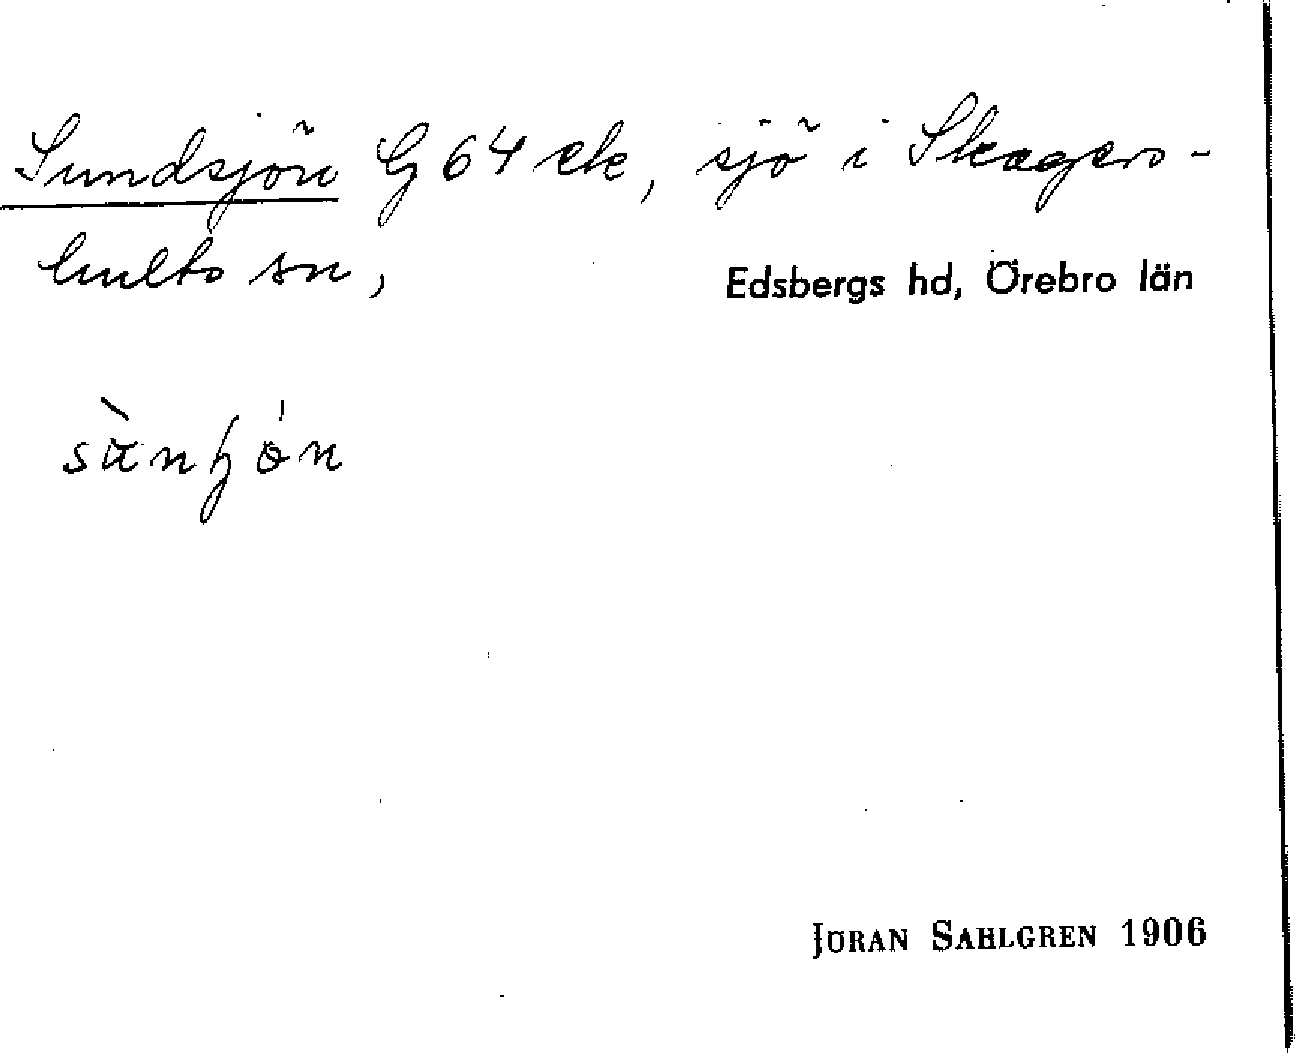 Sundsjön G 64 ek, sjö i Skagers-
hults sn, Edsbergs hd, Örebro län
JÖRAN SAHLGREN 1906